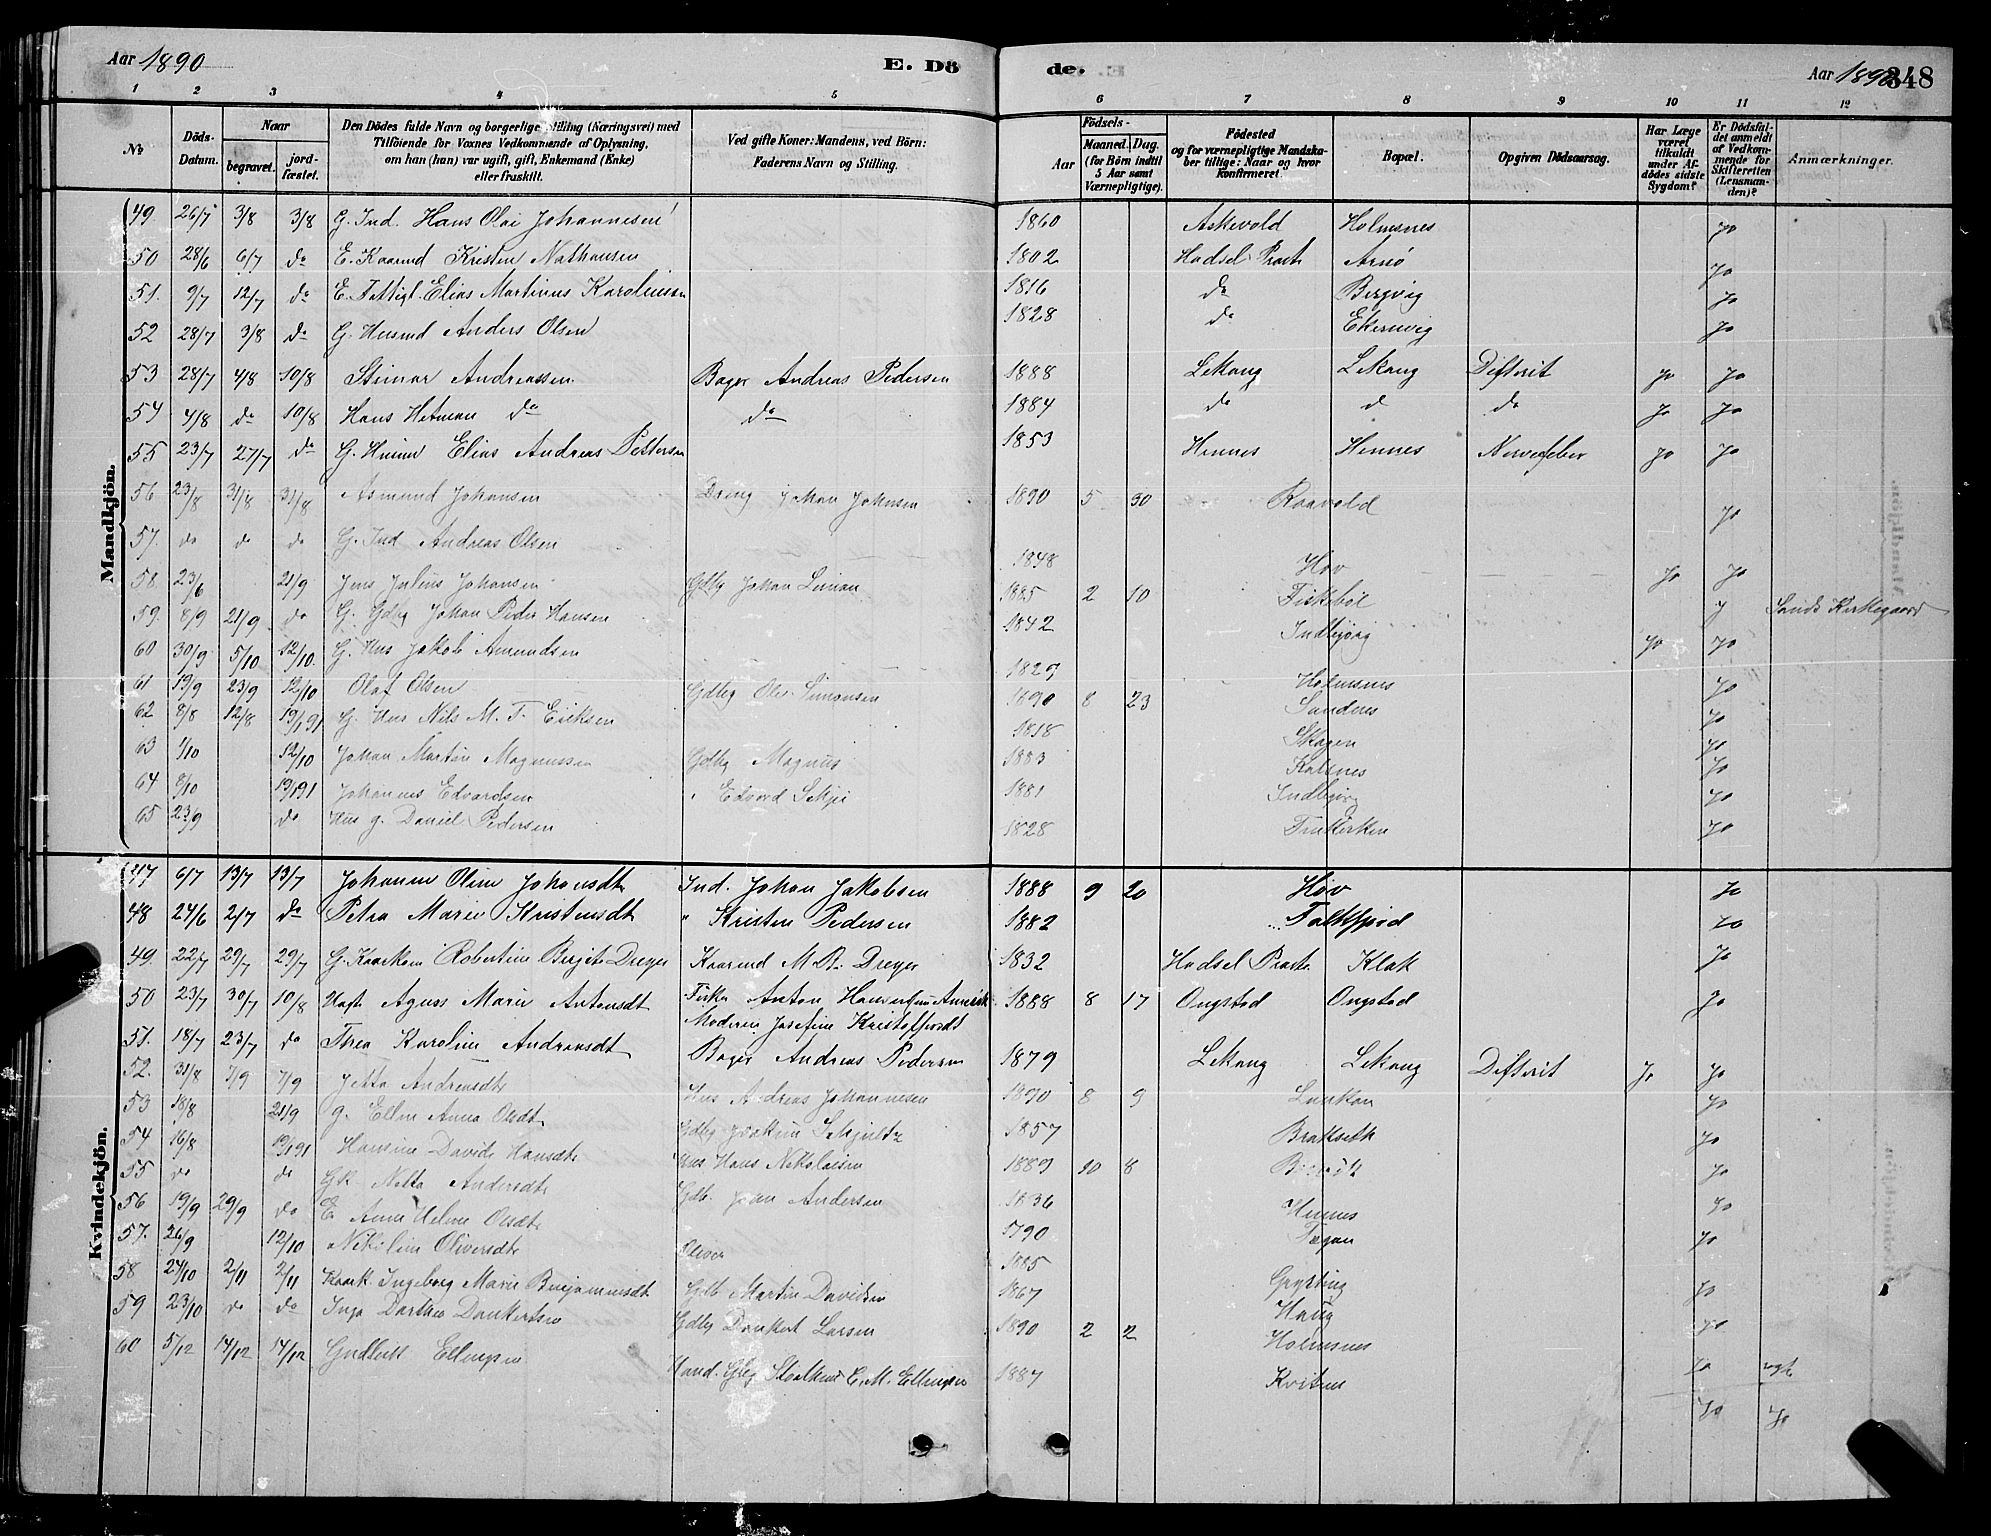 Aar 1890 E. Döde. Aar 1890 348
1 2 3 4 5 6 7 8 9 10 11 12
No. Döds-Datum. Naar begravet. jordfæstet. Den Dödes fulde Navn og borgerlige Stilling (Næringsvei) med Tilföiende for Voxnes Vedkommende af Oplysning, om han (hun) var ugift, gift, Enkemand (Enke) eller fraskilt. Ved gifte Koner: Mandens, ved Börn: Faderens Navn og Stilling. Födsels- Aar Maaned. Dag. (for Börn indtil 5 Aar samt Værnepligtige). Födested og for værnepligtige Mandskaber tillige: Naar og hvor konfirmeret. Bopæl. Opgiven Dödsaarsag. Har Læge været tilkaldt under Afdödes sidste Sygdom? Er Dödsfaldet anmeldt af Vedkommende for Skifteretten (Lensmanden)? Anmærkninger.
Mandkjön.
49. 26/7 3/8 3/8 G. Ind. Hans Olai Johannesen 1860 Askevold Holmsnes Jo
50 28/6 6/7 do E. Kaarmd Kristen Nathansen 1802 Hadsel Præst. Arnö Jo
51. 9/7 12/7 do E. Fattigl. Elias Martinus Karoliussen 1816 do Bergvig Jo
52 28/7 3/8 do G. Husmd Anders Olsen 1828 do Ekernvig Jo
53 28/7 4/8 10/8 Steinar Andreassen Bager Andreas Pedersen 1888 Lekang Lekang Difterit Jo Jo
54 4/8 do 10/8 Hans Hetman do do 1884 do d do Jo Jo
55 23/7 27/7 do G. Elias Andreas Pettersen 1853 Hennes Hennes Nervefeber Jo Jo
56 23/8 31/8 31/8 Asmund Johansen Dreng Johan Johnsen 1890 5 30 Raavold Jo
57. do do do G. Ind Andreas Olsen 1848 Hov Jo Jo
58. 23/6 21/9 Jens Julius Johansen Gdbg Johan Simon 1885 2 10 Fiskebøl J Sands Kirkegaard
59. 8/9 21/9 do G. Gdbg Johan Peder Hansen 1842 Indbjörg Jo Jo
60 30/9 5/10 12/10. G. Hus Jakob Amundsen 1829 Holmsnes Jo
61 19/9 23/9 12/10 Olaf Olsen Gdbg Ole Simonsen 1890 8 23 Sandnes Jo
62 8/8 12/8 19/1 91 G. Hus Nils M. T. Eriksen 1818 Skagen Jo
63 1/10 12/10 Johan Martin Magnussen Gdbg Magnus 1883 Kaltnes Jo
64 8/10 19/1 91 Johannes Edvardsen Edvard 1881 Indbjörg Jo
65 23/9 do Hus g. Daniel Pedersen 1828 Jo
Kvindekjön.
47 6/7 13/7 13/7 Johanne Oline Johansdt Ind. Johan Jakobsen 1888 9 20 Hov Jo
48 24/6 2/7 do Petra Marie Kristensdt " Kristen Pedersen 1882 Falkfjord Jo
49. 22/7 29/7 29/7 G. Kaarkone Robertine Birgitte Dreyer Kaarmd M. B. Dreyer 1832 Hadsel Præst. Klak Jo
50 23/7 30/7 10/8 Uægte Agnes Marie Antonsdt Fisker Anton Hansen Amerika 1888 8 17 Ongstad Ongstad Jo
Moderen Josefine Kristoffersdt
51. 18/7 23/7 do Thea Karoline Andreasdt Bager Andreas Pedersen 1879 Lekang Lekang Difterit Jo Jo
52. 31/8 7/9 7/9 Jetta Andreasdt Hus Andreas Johannesen 1890 8 9 Lunkan Jo
53 18/8 21/9 g. Ellen Anna Olsdt Gdbg Joakim 1857 Jo
54 16/8 19/1 91 Hansine Davida Hansdt Hus Hans Nikolaisen 1889 10 8 Jo
55 do do Gk. Netta Andersdt Gdb. Andersen 1836 Hennes Jo
56 19/9 29/9 do E. Anne Helene Olsdt 1790 Jo
57. 26/9 12/10 Nikoline Oliversdt Oliver 1885 Jo
58 24/10 2/11 2/11 Kaark Ingeborg Marie Benjaminsdt Gdb Martin Davidsen 1867 Haug
59 23/10 do do Inga Dorthea Dankertsen Gdbg Dankert Larsen 1890 2 2 Holmsnes Jo
60 5/12 14/12 14/12 Ellingsen Hand. Gbg C. M. Ellingsen 1887 Kvitnes Jo Jo